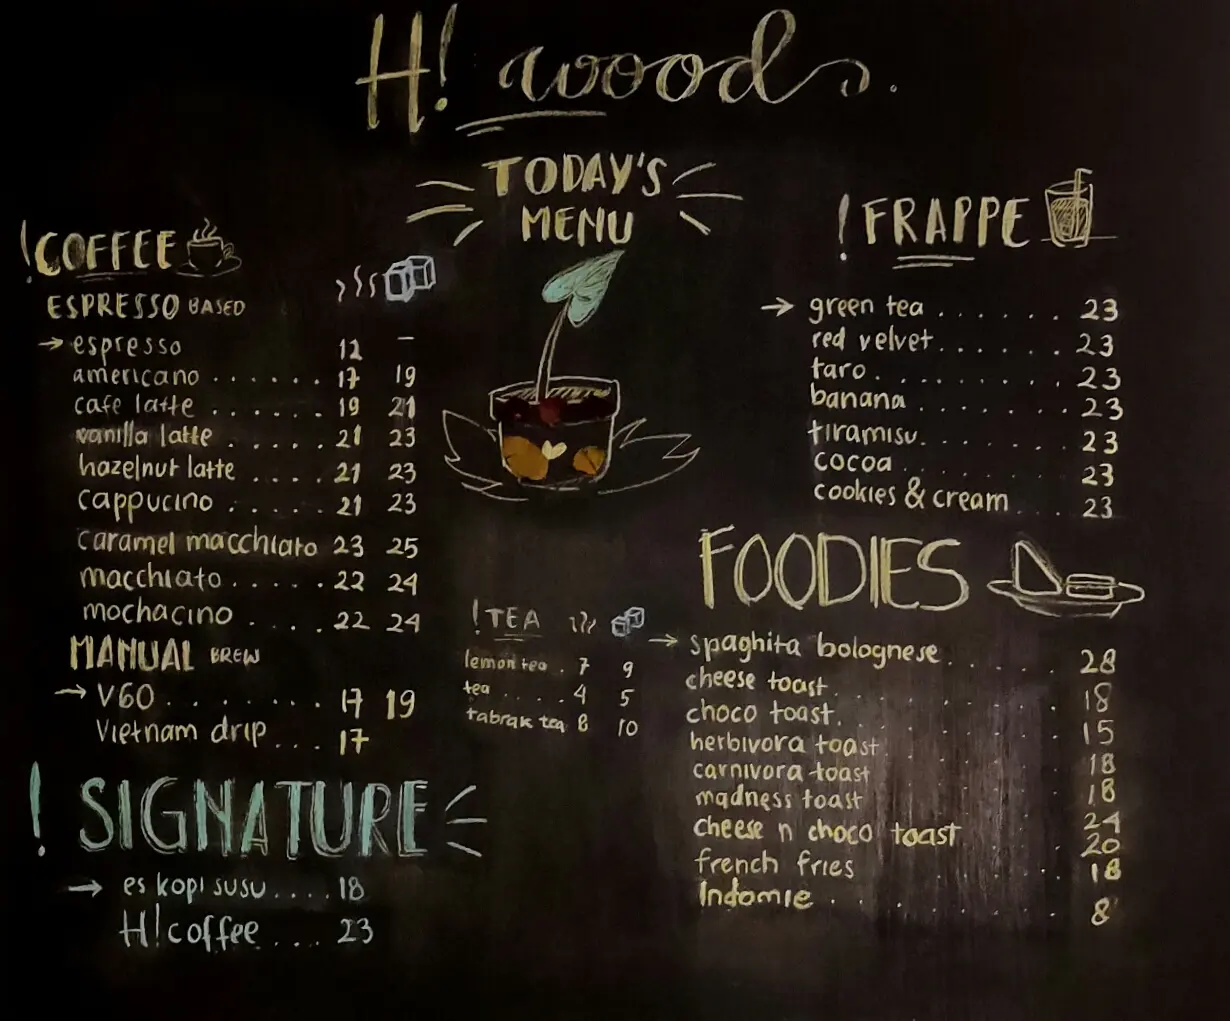 H! woods.
TODAY'S
MENU
! COFFEE
ESPRESSO BASED
→ espresso 12 –
americano . . . . . . 17 19
cafe latte . . . . . . 19 21
vanilla latte . . . . . 21 23
hazelnut latte . . . . 21 23
cappucino . . . . . . 21 23
caramel macchiato 23 25
macchiato . . . . . 22 24
mochacino . . . . 22 24
MANUAL BREW
→ V60 . . . . . . . . 17 19
Vietnam drip . . . 17
! SIGNATURE
→ es kopi susu . . . . 18
H! coffee . . . . 23
! TEA
lemon tea . 7 9
tea . . . . . 4 5
tabrak tea 8 10
! FRAPPE
→ green tea . . . . . . 23
red velvet . . . . . . 23
taro . . . . . . . . 23
banana . . . . . . . 23
tiramisu . . . . . . 23
cocoa . . . . . . . 23
cookies & cream . . . 23
FOODIES
→ spaghita bolognese . . . . . 28
cheese toast . . . . . . . 18
choco toast . . . . . . . 15
herbivora toast . . . . . . 18
carnivora toast . . . . . . 18
madness toast . . . . . . 24
cheese n choco toast . . . 20
french fries . . . . . . 18
Indomie . . . . . . . 8